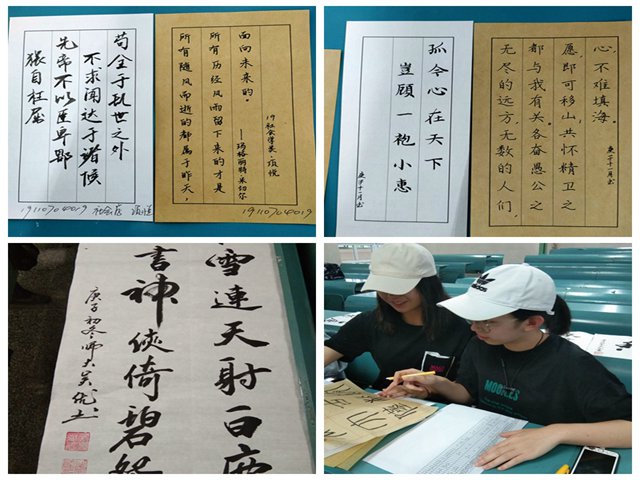 苟全于乱世之外
不求闻达于诸候
先帝不以臣卑鄙
猥自枉屈
19110704019 社会学 项悦
所有随风而逝的都属于昨天，
所有历经风雨留下来的才是
面向未来的。
——玛格丽特·米切尔
19社会学类·项悦
19110704019
孤令心在天下
豈顧一袍小惠
庚子十一月书
无尽的远方，无数的人们，
都与我有关。各奋愚公之
愿，即可移山，共怀精卫之
心，不难填海。
庚子十一月书
雪連天射白鹿
書神俠倚碧
庚子初冬师大吴优书
adidas